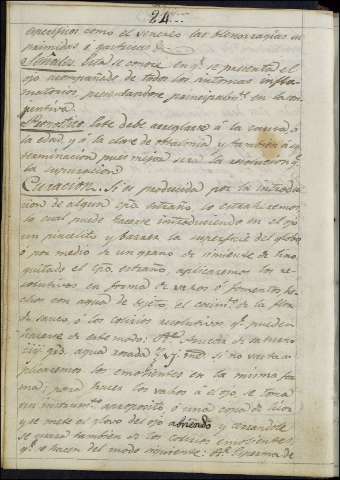 24
especificos como el venereo las blenorragias su
primidas o gastricas &
Señales. Esta se conoce en qe. se presenta el
ojo acompañado de todos los sintomas infla-
matorios presentandose principalmte. en la con
juntiva.
Pronostico. Este debe arreglarse á la causa, á
la edad, y á la clase de oftalmia y tambien á su
terminacion pues mejor será la resolucion qe.
la supuracion
Curacion. Si es producida por la introduc
cion de algun cpo. estraño lo estraheremos
lo cual puede hacerse introduciendo en el ojo
un pincelito y barrer la superficie del globo
ó por medio de un grano de simiente de
quitado el cpo. estraño, aplicaremos los re-
solutivos en forma de vaños ó fomentos he
chos con agua de el cocimto. de la flor
de sauco, ó los colirios resolutivos qe. pueden
hacerse de este modo: Azucar de saturno
agua rosada si no vasta a
plicaremos los emolientes en la misma for
ma; para hacer los vaños á el ojo se toma
un instrumto. aproposito ó una copa de licor
y se mete el globo del ojo abriendo y cerrandole
se usará tambien de los colirios emolientes,
qe. se hacen del modo siguiente: Esperma de